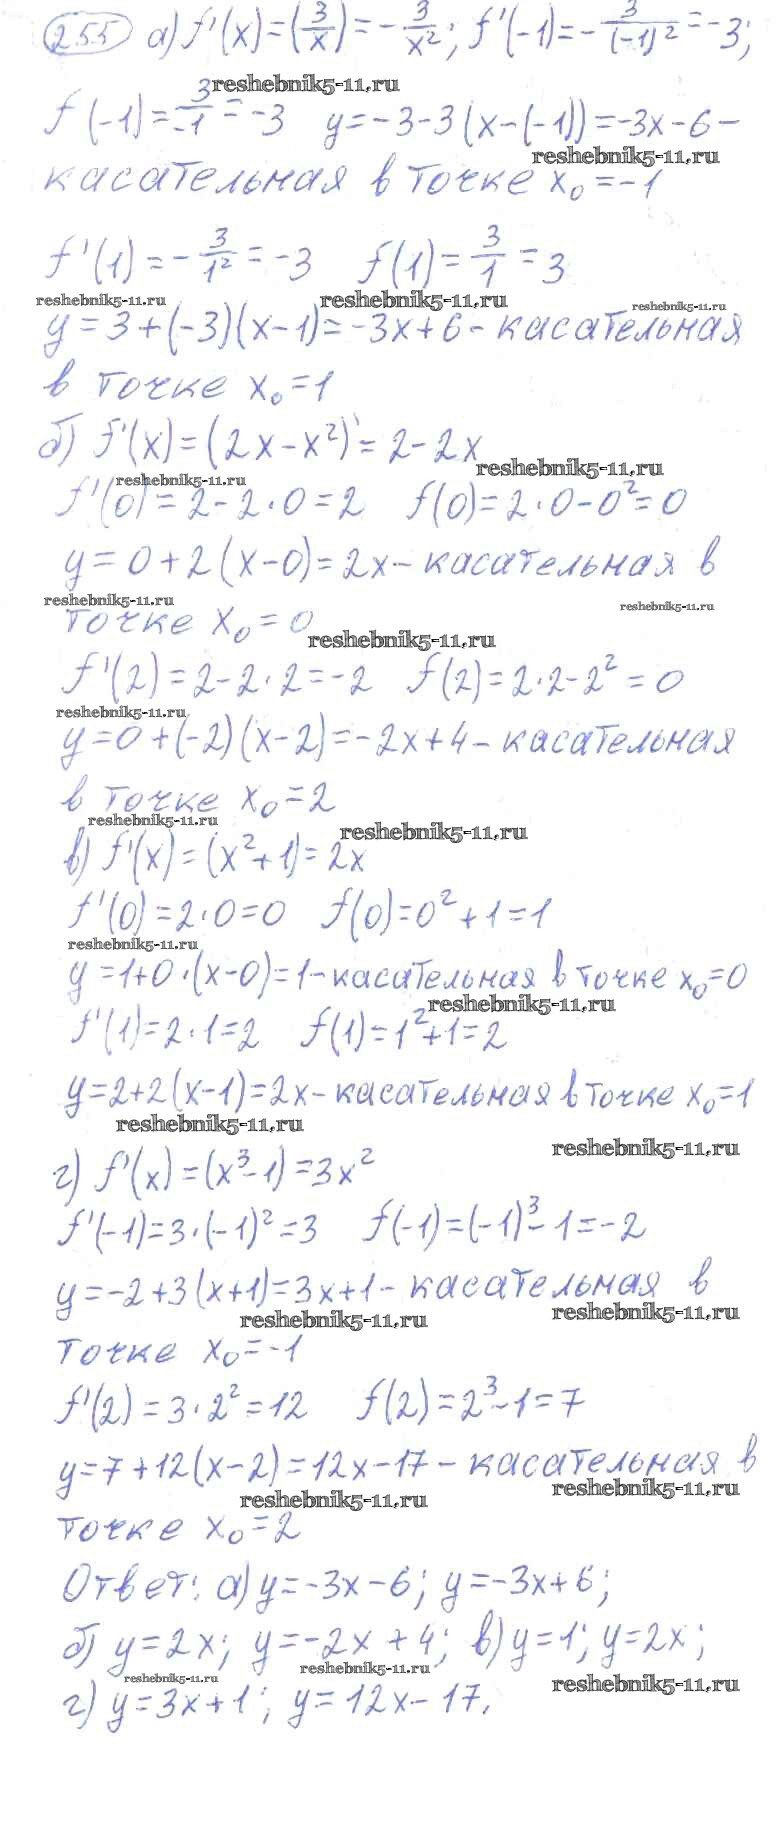 255 а) f'(x)=(3/x)=-3/x²; f'(-1)=-3/(-1)²=-3;
reshebnik5-11.ru
f(-1)=3/-1=-3 y=-3-3(x-(-1))=-3x-6-
reshebnik5-11.ru
касательная в точке x₀=-1
f'(1)=-3/1²=-3 f(1)=3/1=3
reshebnik5-11.ru reshebnik5-11.ru reshebnik5-11.ru
y=3+(-3)(x-1)=-3x+6-касательная
в точке x₀=1
б) f'(x)=(2x-x²)'=2-2x
reshebnik5-11.ru
reshebnik5-11.ru
f'(0)=2-2·0=2 f(0)=2·0-0²=0
y=0+2(x-0)=2x-касательная в
reshebnik5-11.ru reshebnik5-11.ru
точке x₀=0
reshebnik5-11.ru
f'(2)=2-2·2=-2 f(2)=2·2-2²=0
reshebnik5-11.ru
y=0+(-2)(x-2)=-2x+4-касательная
в точке x₀=2
reshebnik5-11.ru reshebnik5-11.ru
в) f'(x)=(x²+1)=2x
f'(0)=2·0=0 f(0)=0²+1=1
reshebnik5-11.ru
y=1+0·(x-0)=1-касательная в точке x₀=0
reshebnik5-11.ru
f'(1)=2·1=2 f(1)=1²+1=2
y=2+2(x-1)=2x-касательная в точке x₀=1
reshebnik5-11.ru
reshebnik5-11.ru
г) f'(x)=(x³-1)=3x²
f'(-1)=3·(-1)²=3 f(-1)=(-1)³-1=-2
y=-2+3(x+1)=3x+1-касательная в
reshebnik5-11.ru reshebnik5-11.ru
точке x₀=-1
f'(2)=3·2²=12 f(2)=2³-1=7
y=7+12(x-2)=12x-17-касательная в
reshebnik5-11.ru reshebnik5-11.ru
точке x₀=2
Ответ: а) y=-3x-6; y=-3x+6;
б) y=2x; y=-2x+4; в) y=1; y=2x;
reshebnik5-11.ru reshebnik5-11.ru reshebnik5-11.ru
г) y=3x+1; y=12x-17.